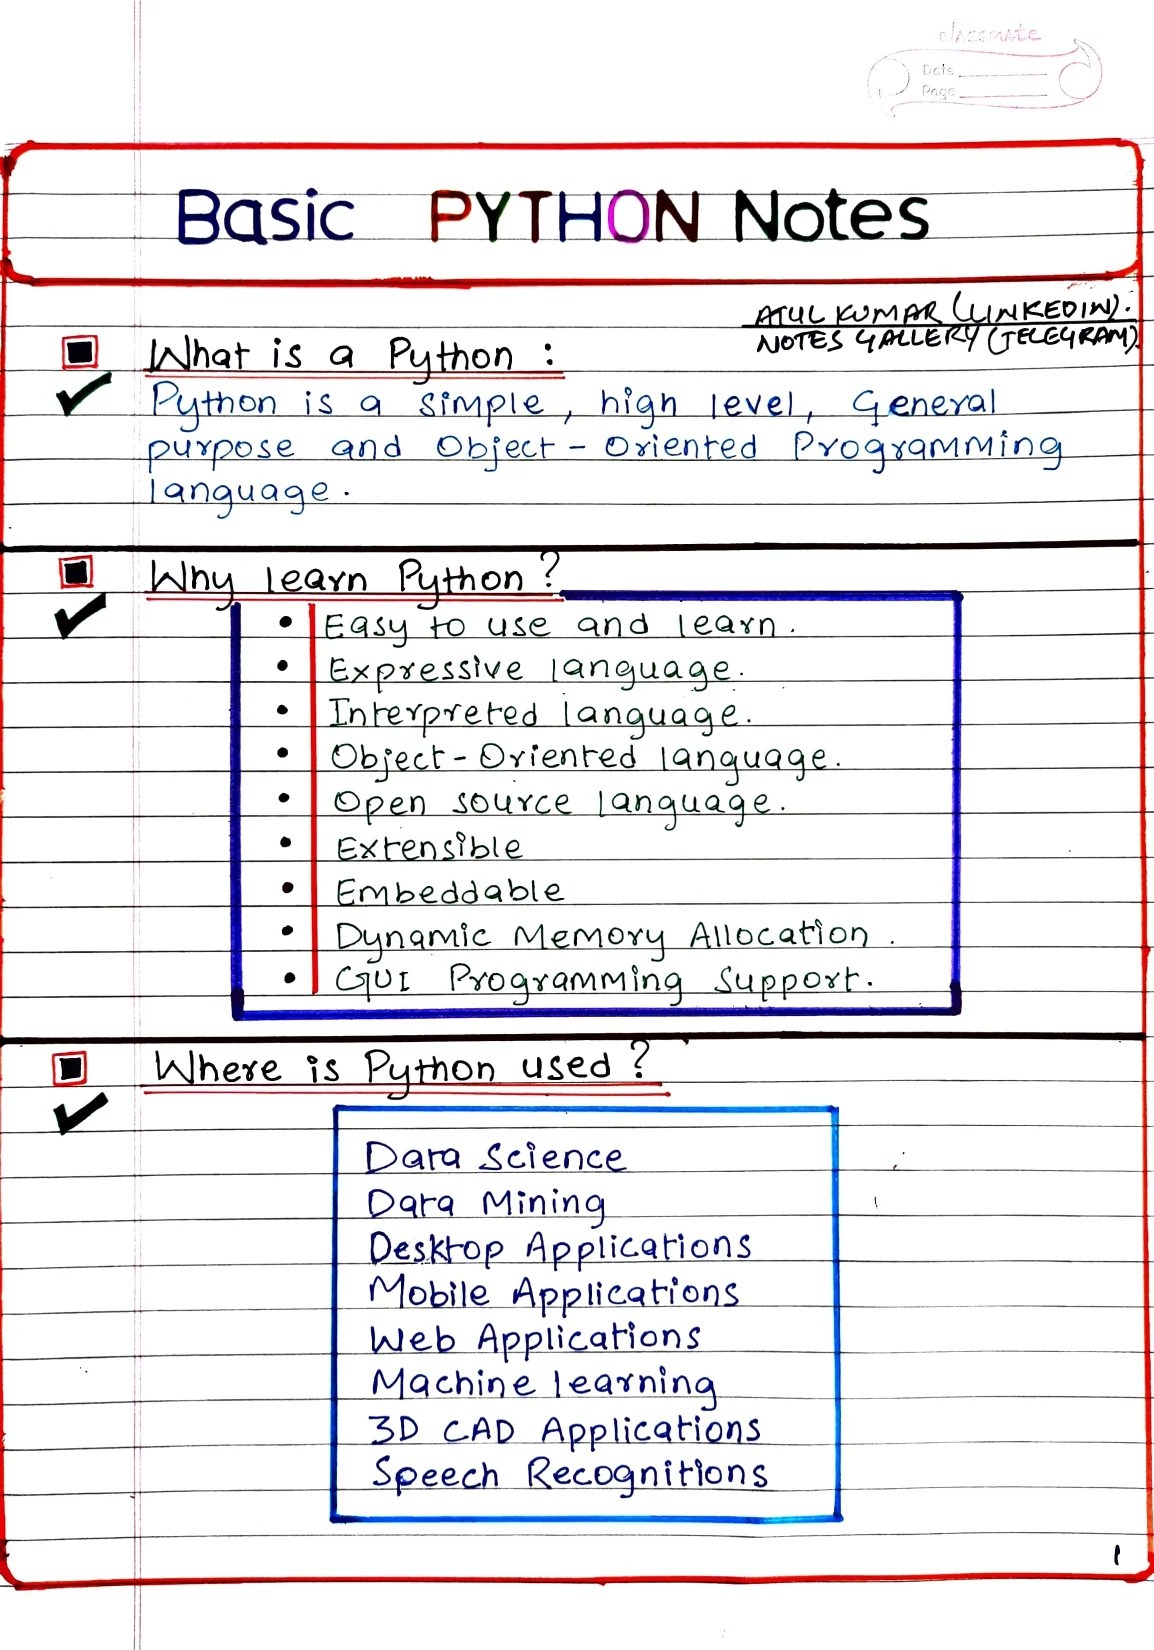 classmate
Date
Page
Basic PYTHON Notes
ATUL KUMAR (LINKEDIN).
NOTES GALLERY (TELEGRAM)
What is a Python :
Python is a simple, high level, General
purpose and Object-Oriented Programming
language.
Why learn Python?
• Easy to use and learn.
• Expressive language.
• Interpreted language.
• Object-Oriented language.
• Open source language.
• Extensible
• Embeddable
• Dynamic Memory Allocation.
• GUI Programming Support.
Where is Python used?
Data Science
Data Mining
Desktop Applications
Mobile Applications
Web Applications
Machine learning
3D CAD Applications
Speech Recognitions
1